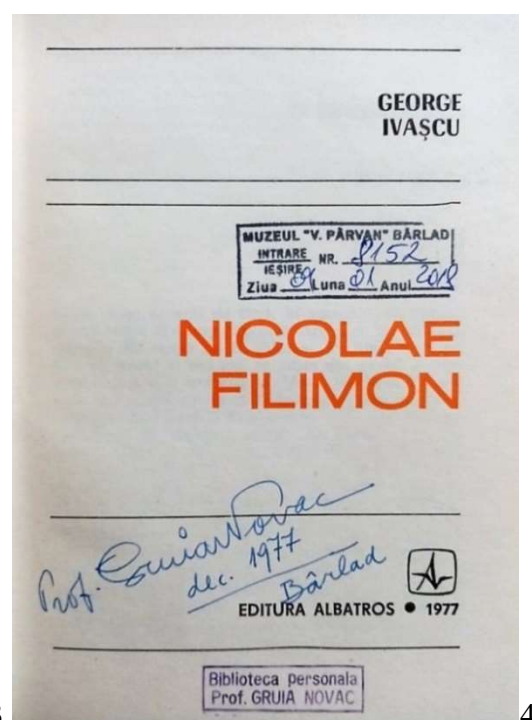 GEORGE
IVAȘCU
MUZEUL "V. PÂRVAN" BÂRLAD
INTRARE
IEȘIRE NR. 8152
Ziua 09 Luna 01 Anul 2018
NICOLAE
FILIMON
Prof. Gruia Novac
dec. 1977
Bârlad
EDITURA ALBATROS • 1977
Biblioteca personala
Prof. GRUIA NOVAC
4